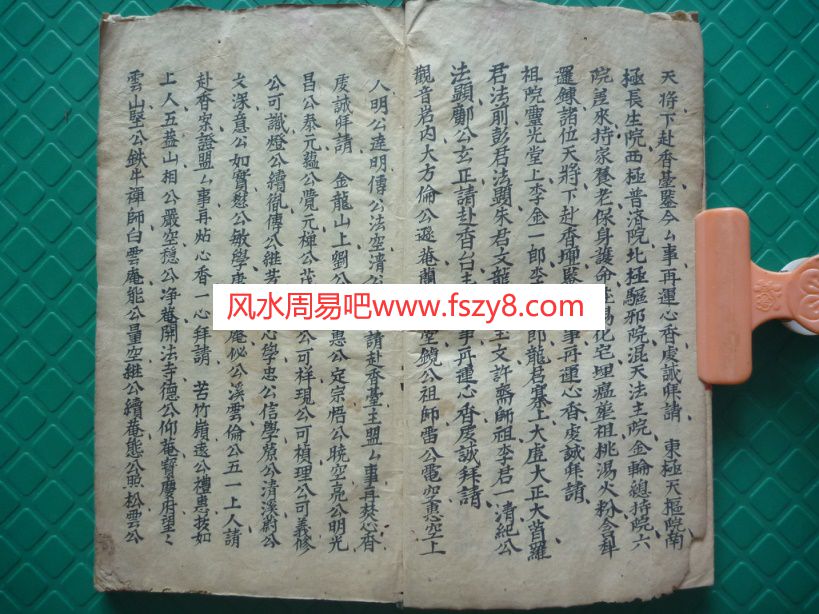 天將下赴香臺鑒今厶事再運心香虔誠拜請 東極天樞院南
極長生院西極普済院北極驅邪院混天法主院金輪總持院六
院差來持家養老保身護命 湯化皂埋瘟 祖桃湯火粉含犁
邏鍊諸位天將下赴香壇 事再運心香虔誠拜請
祖院靈光堂上李金一郎李 郎龍君寨上大虛大正大首羅
君法前彭君法顯朱君文龍 主文許齋師祖李君一清紀公
法顯鄺公玄正請赴香台主 事再運心香虔誠拜請
觀音岩内大方倫公遜菴蘭 堂鏡公祖師雷公電空惠空上
人明公達明傳公法空清公 請赴香臺主盟厶事再焚心香
虔誠拜請 金龍山上劉公 惠公定宗悟公曉空亮公明光
昌公泰元蘊公覺元禅公茂 公可祥現公可禎理公可義修
公可讖燈公續胤傳公継芳 心學忠公信學原公清溪蔚公
文深意公如實慰公敏學 庵似公溪雲倫公五一上人請
赴香案證盟厶事再㸃心香一心拜請 苦竹嶺遠公禮惠 如
上人五蓋山相公嚴空穩公净菴開法寺德公仰菴寳慶府望々
雲山堅公鉄牛禪師白雲庵能公量空継公續菴態公照松雲公
风水周易吧www.fszy8.com